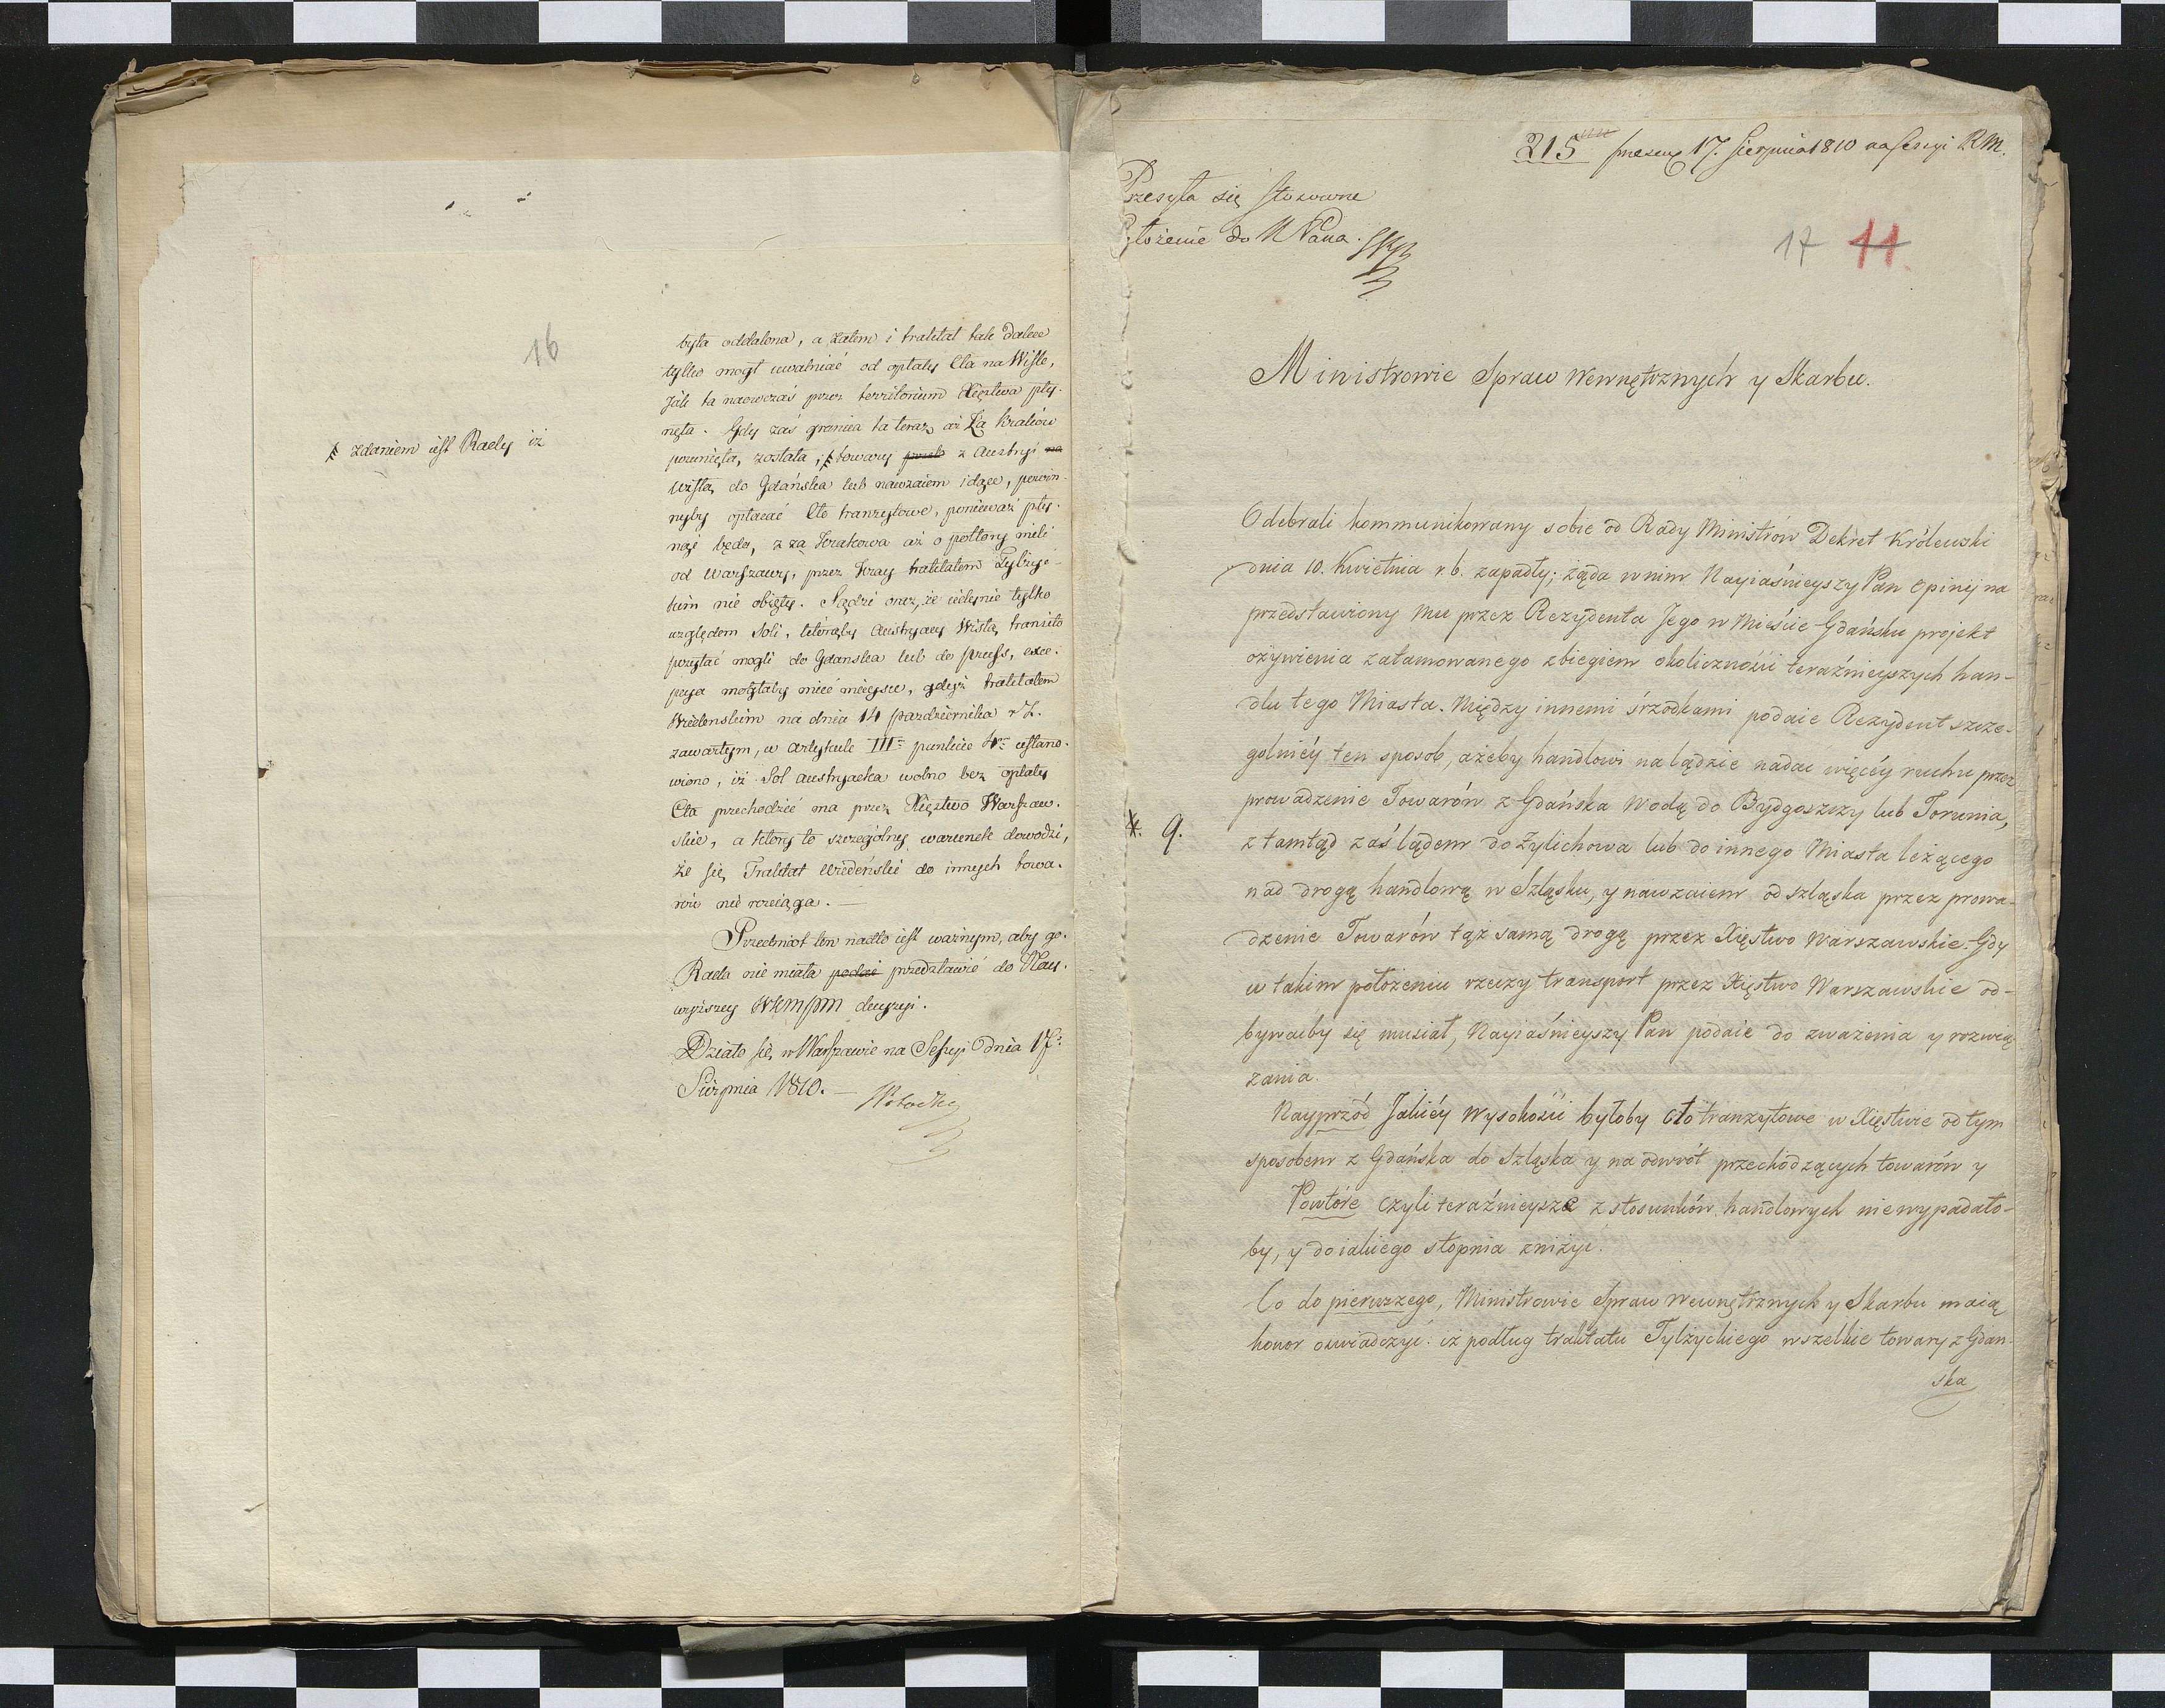 16
była oddalona, a zatem i traktat tak dalece
tylko mogł uwalniać od opłaty Cła na Wiśle,
Jak ta naowczas przez territorium Xięstwa pły-
nęła. Gdy zaś granica ta teraz aż Za Krakow
posunięta, została, towary z Austryi na
Wisłą do Gdańska lub nawzaiem idące, powin-
nyby opłacać Cło tranzytowe, ponieważ pły-
nąć będą, z za Krakowa aż o połtory mili
od Warszawy, przez Kray traktatem Tylżyc-
kim nie obięty. Sądzi oraz, że iedynie tylko
względem Soli, ktorąby Austryacy Wisłą transito
posyłać mogli do Gdanska lub do Pruss, exce-
pcya mogłaby mieć mieysce, gdyż traktatem
Wiedenskim na dniu 14 pazdziernika r. z.
zawartym, w artykule III: punkcie 4m ustano-
wiono, iż Sol austryacka wolno bez opłaty
Cła przechodzić ma przez Xięstwo Warszaw-
skie, a ktory to szczegolny warunek dowodzi,
że się Traktat Wiedeński do innych towa-
row nie rozciąga. —
zdaniem iest Rady iż
Przedmiot ten nadto iest ważnym, aby go
Rada nie miała podać przedstawić do Nay-
wyższey WKMsPM decyzyi.
Działo się w Warszawie na Sessyi dnia 17:
Sierpnia 1810. —
215 17. Sierpnia 1810 na sessyi RM.
Przesyła się stosowne
łożenie do N Pana.
17 11
Ministrowie Spraw Wewnętrznych y Skarbu.
Odebrali kommunikowany sobie od Rady Ministrów Dekret Królewski
dnia 10. Kwietnia r. b. zapadły; żąda w nim Nayiaśnieyszy Pan Opinij na
przedstawiony mu przez Rezydenta Jego w Mieście Gdańsku projekt
ożywienia zatamowanego zbiegiem okoliczności teraźnieyszych han-
dlu tego Miasta. Między innemi śrzodkami podaie Rezydent szcze-
golniéy ten sposob, ażeby handlowi na lądzie nadać więcéy ruchu przez
prowadzenie Towarów z Gdańska wodą do Bydgoszczy lub Torunia,
* 9.
z tamtąd zaś lądem do Zylichowa lub do innego Miasta leżącego
nad drogą handlową w Szląsku, y nawzaiem od szląska przez prowa-
dzenie Towarów tąż samą drogą przez Xięstwo Warszawskie. Gdy
w takim położeniu rzeczy transport przez Xięstwo Warszawskie od-
bywałby się musiał, Nayiaśnieyszy Pan podaie do zważenia y rozwią-
zania.
Nayprzód Jakiéy wysokości byłoby cło tranzytowe w Xięstwie od tym
sposobem z Gdańska do Szląska y na odwrót przechodzących towarów y
Powtóre czyli teraźnieysze z stosunków handlowych niewypadało-
by, y do iakiego stopnia zniżyć.
Co do pierwszego, Ministrowie Spraw Wewnętrznych y Skarbu maią
honor oswiadczyć: iż podług traktatu Tylżyckiego wszelkie towary z Gdan-
ska